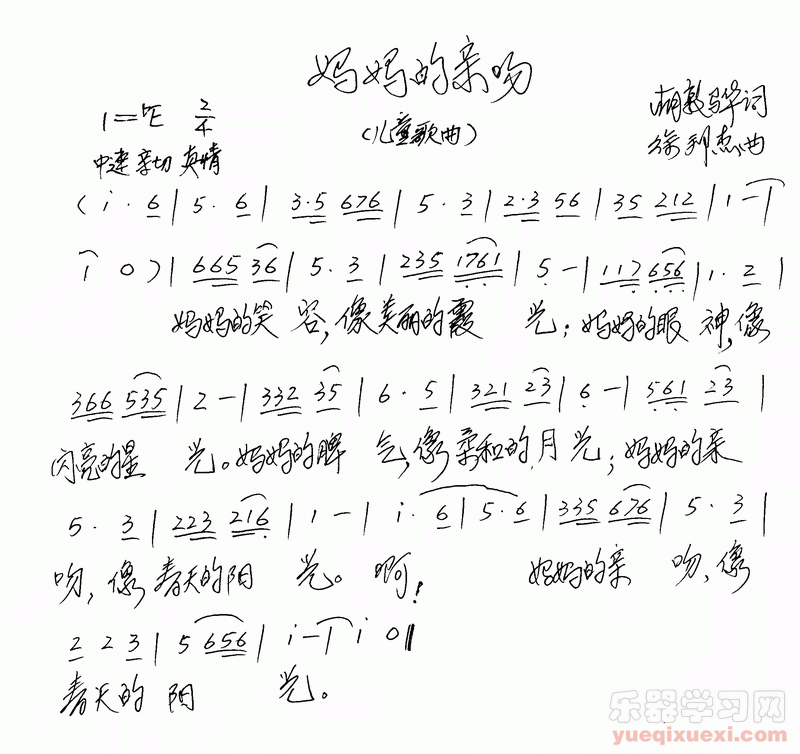 妈妈的亲吻
(儿童歌曲)
1=♭E 2/4
胡敦骅词
中速 亲切 真情
徐利杰曲
(i·6|5·6|3·5 676|5·3|2·3 56|35 212|1-|
1 0)|665 36|5·3|235 1761|5-|117 656|1·2|
妈妈的笑 容,像美丽的霞 光;妈妈的眼 神,像
366 535|2-|332 35|6·5|321 23|6-|561 23|
闪亮的星 光。妈妈的脾 气,像柔和的月光;妈妈的亲
5·3|223 216|1-|i·6|5·6|335 676|5·3|
吻,像 春天的阳 光。啊! 妈妈的亲 吻,像
2 2 3|5 656|i-|i 0‖
春天的 阳 光。
乐器学习网
yueqixuexi.com